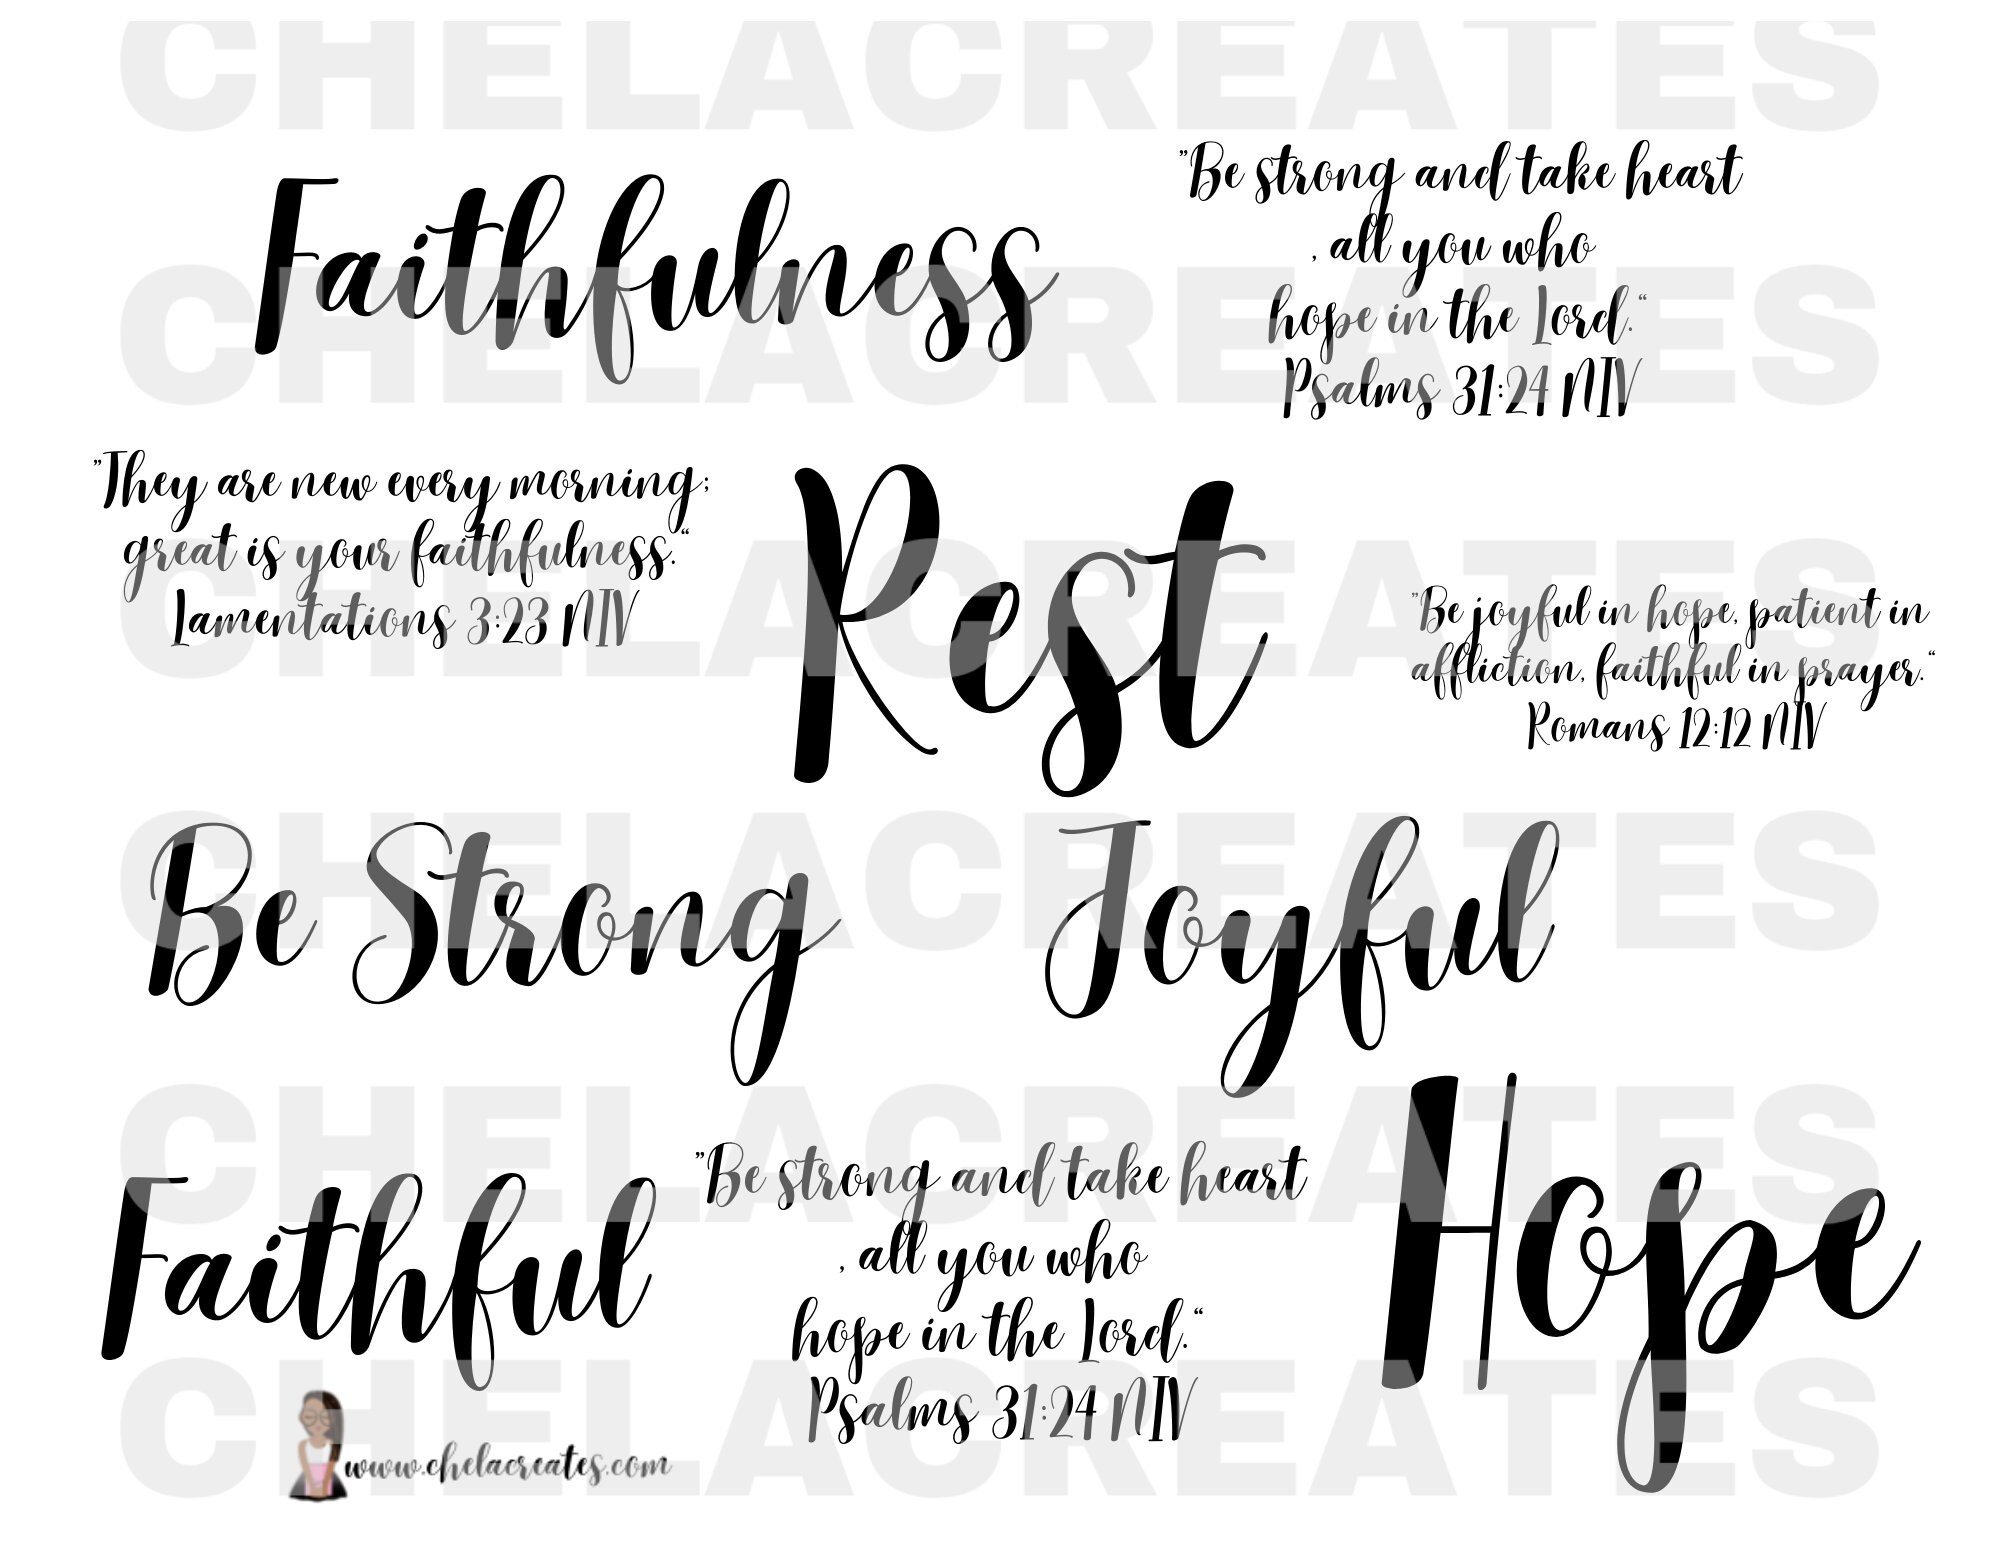 CHELACREATES
Faithfulness
"Be strong and take heart
, all you who
hope in the Lord."
Psalms 31:24 NIV
CHELACREATES
"They are new every morning;
great is your faithfulness."
Lamentations 3:23 NIV
Rest
CHELACREATES
"Be joyful in hope, patient in
affliction, faithful in prayer."
Romans 12:12 NIV
CHELACREATES
Be Strong
Joyful
CHELACREATES
Faithful
"Be strong and take heart
, all you who
hope in the Lord."
Psalms 31:24 NIV
Hope
CHELACREATES
www.chelacreates.com